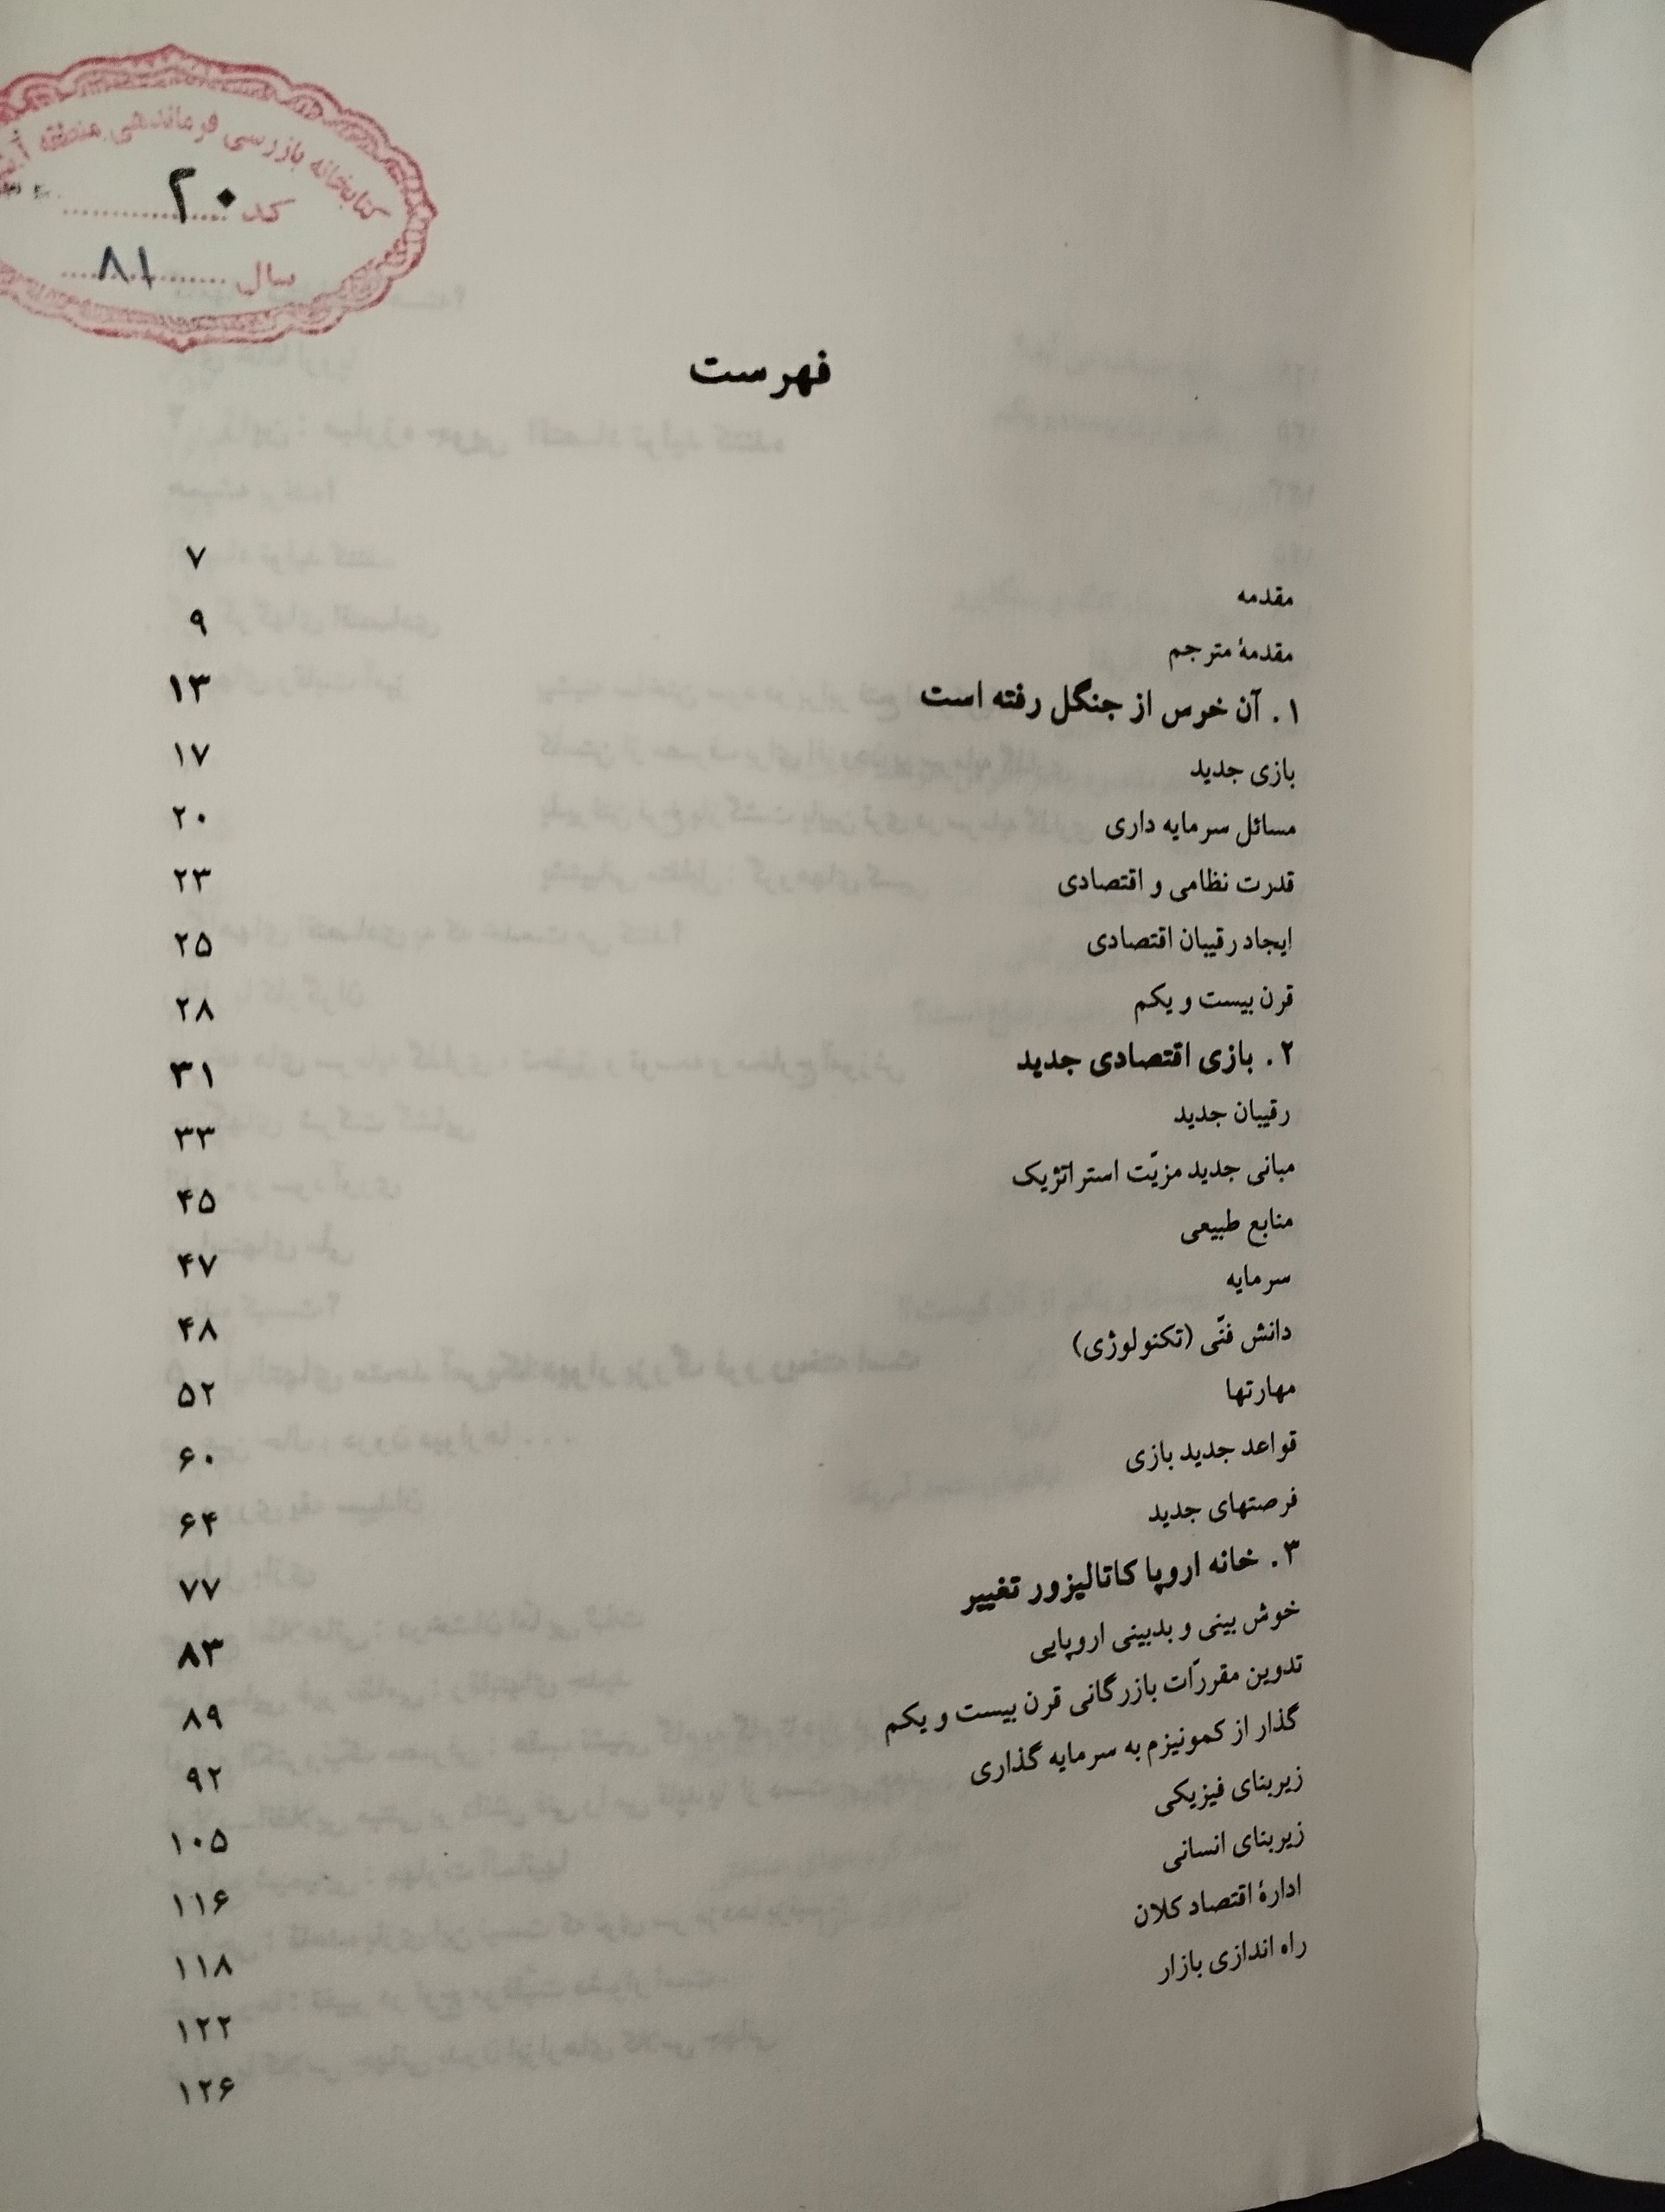 کتابخانه بازرسی فرماندهی منطقه
کد ۲۰
سال ۸۱
فهرست
مقدمه ۷
مقدمهٔ مترجم ۹
۱. آن خرس از جنگل رفته است ۱۳
بازی جدید ۱۷
مسائل سرمایه داری ۲۰
قدرت نظامی و اقتصادی ۲۳
ایجاد رقیبان اقتصادی ۲۵
قرن بیست و یکم ۲۸
۲. بازی اقتصادی جدید ۳۱
رقیبان جدید ۳۳
مبانی جدید مزیّت استراتژیک ۴۵
منابع طبیعی ۴۷
سرمایه ۴۸
دانش فنّی (تکنولوژی) ۵۲
مهارتها ۶۰
قواعد جدید بازی ۶۴
فرصتهای جدید ۷۷
۳. خانه اروپا کاتالیزور تغییر ۸۳
خوش بینی و بدبینی اروپایی ۸۹
تدوین مقررّات بازرگانی قرن بیست و یکم ۹۲
گذار از کمونیزم به سرمایه گذاری ۱۰۵
زیربنای فیزیکی ۱۱۶
زیربنای انسانی ۱۱۸
ادارهٔ اقتصاد کلان ۱۲۲
راه اندازی بازار ۱۲۶